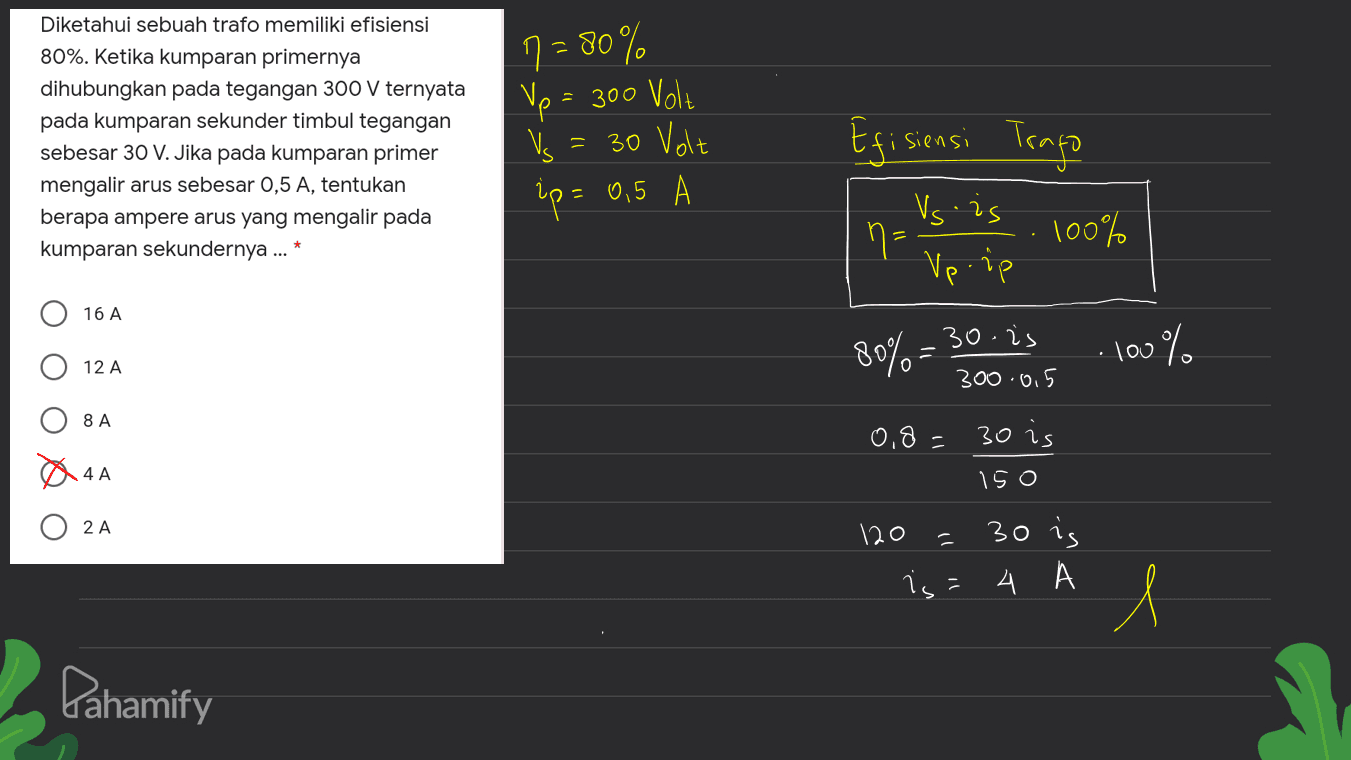 Diketahui sebuah trafo memiliki efisiensi
80%. Ketika kumparan primernya
dihubungkan pada tegangan 300 V ternyata
pada kumparan sekunder timbul tegangan
sebesar 30 V. Jika pada kumparan primer
mengalir arus sebesar 0,5 A, tentukan
berapa ampere arus yang mengalir pada
kumparan sekundernya ... *
16 A
12 A
8 A
4 A
2 A
η = 80%
Vp = 300 Volt
Vs = 30 Volt
ip = 0,5 A
Efisiensi Trafo
η = Vs . is / Vp . ip . 100%
80% = 30 . is / 300 . 0,5 . 100%
0,8 = 30 is / 150
120 = 30 is
is = 4 A
Pahamify